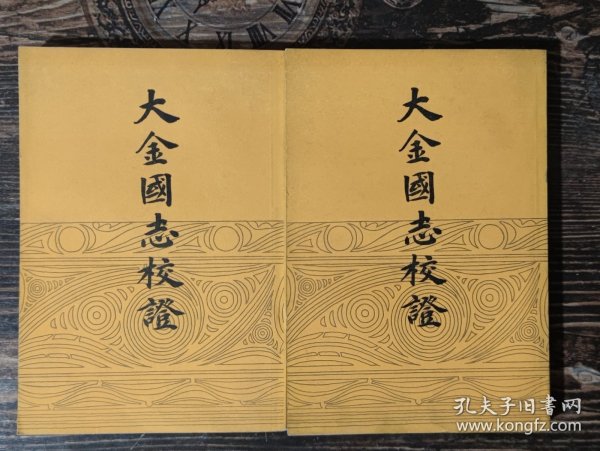 大金國志校證
大金國志校證
孔夫子旧書网
www.kongfz.com